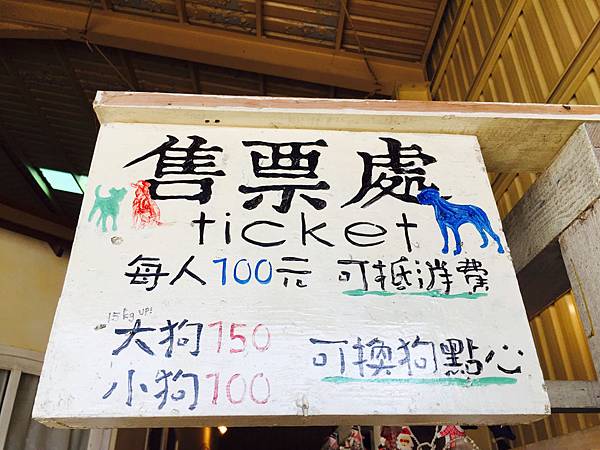 售票處
ticket
每人100元 可抵消費
15kg UP!
大狗150
小狗100 可換狗點心